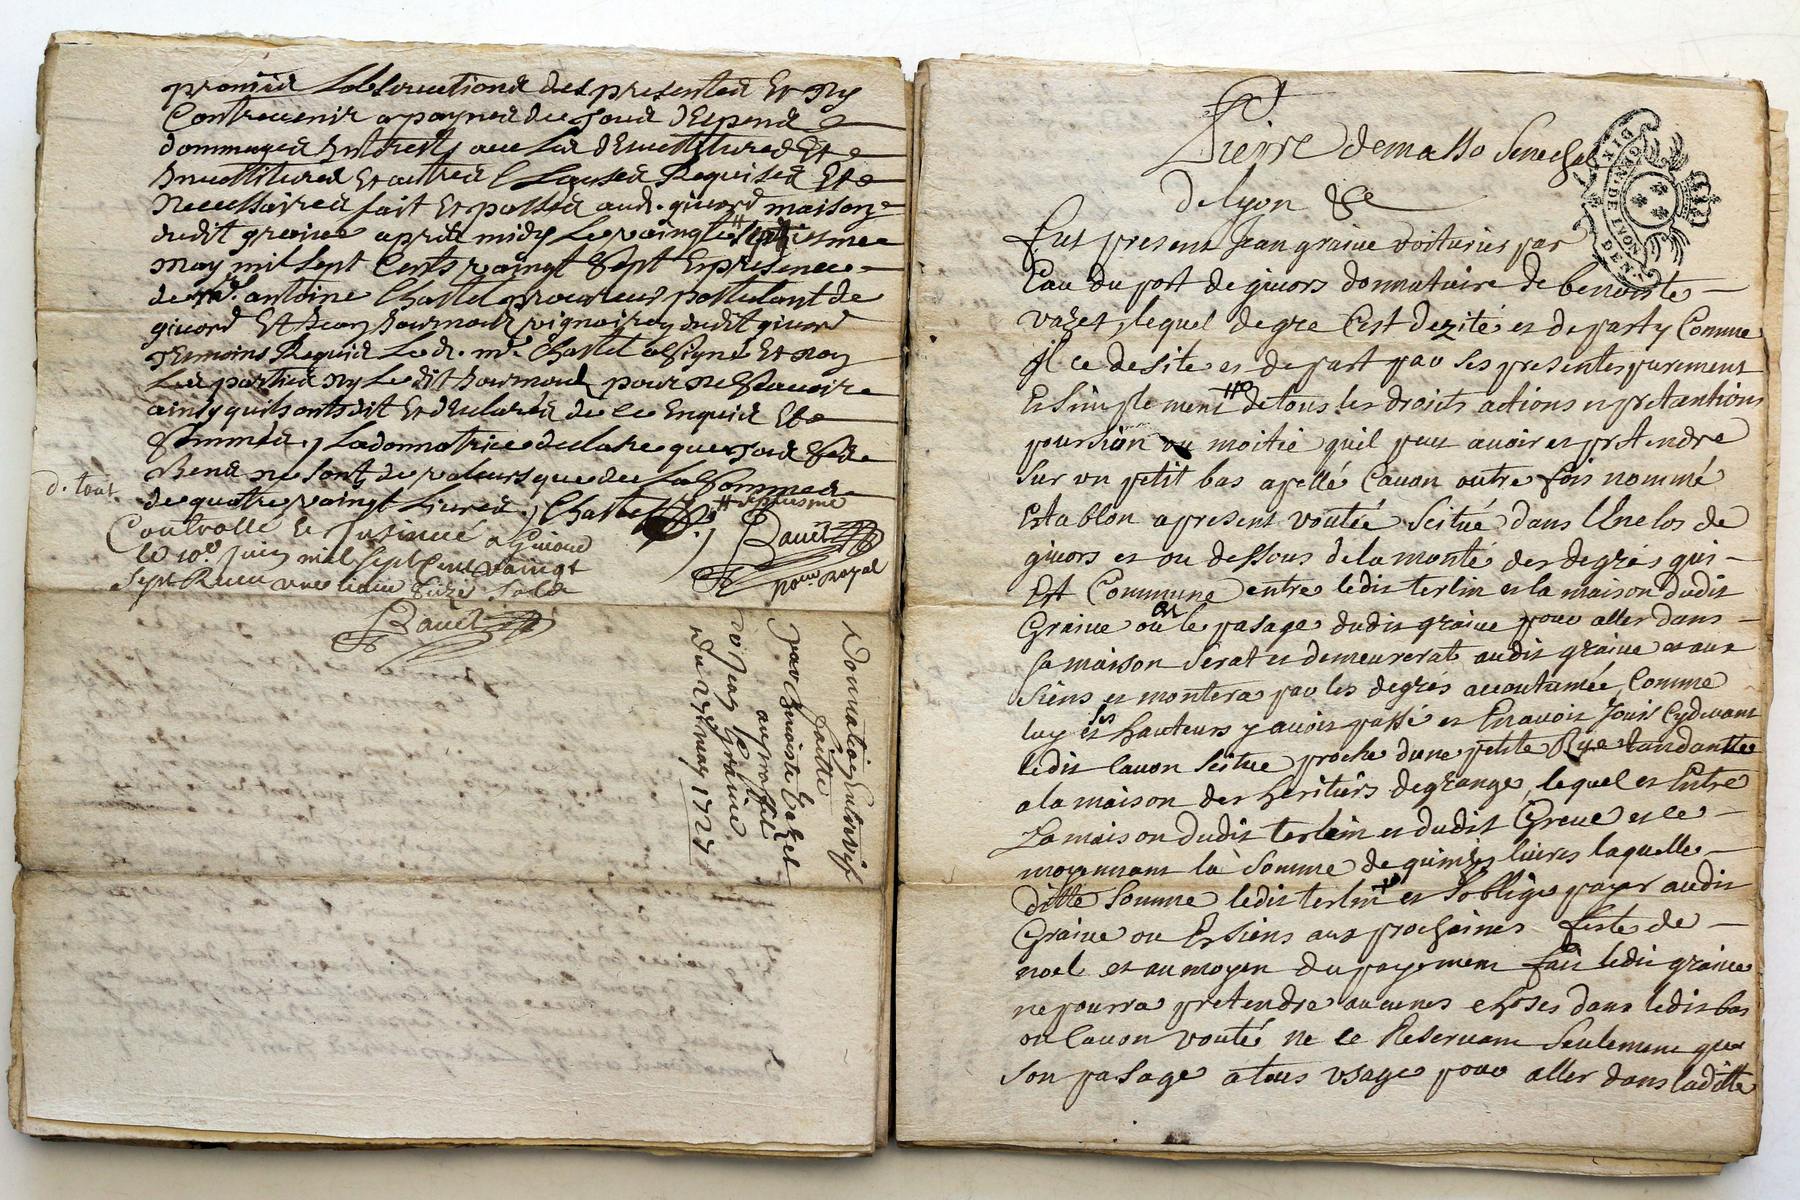 promis Lobservations des presentes Et Ny
Contrevenir a paynes de tous despends
dommages Interests avec les
Investitures Et autres Clauses Requises Et
Necessaires fait Et passé aud. givord maison
dudit graive apres midy Le vaingt septiesme
may mil sept Cents vaingt sept En presence
de Mr. antoine Chastel procureur postulant de
givord Et Jean vigneron dudit givord
Temoins Requis Le d. mr. Chastel a signé Et Non
Les parties Ny Le dit pour ne scavoire
ainsy quils ont dit Et declarés de ce Enquis Et
sommés, La donnatrice declare que
ne sont de valeurs que de La somme
de quatre vaingt Livres, Chastel
septiesme
d. tout
Bauet
nore royal
Controllé et Insinué a Givord
le 10e juin mil sept cent vaingt
sept Receu une livre
Bauet
Donnation Entre vifs
faitte
par Benoiste Vazet
au proffit
de Jean Graive
du 27 may 1727
Pierre de masso Senechal
de lyon &c
GEN. DE LYON. DIX D.
Fut present Jean graive voiturier par
Eau du port de givors donnataire de benoiste
vazet, lequel de gre C'est dezité et departy Comme
Il ce desite et depart par ses presentes purement
Et Simplement de tous les droits actions et pretantions
pour sion ou moitié quil peu avoir et pretendre
sur un petit bas apellé Cavon autre fois nommé
Establon apresent voutée Scitué dans l'Enclos de
givors et ou dessous de la monté des degrés qui
Est Commune entre ledit terlin et la maison dudit
Graive ou le pasage dudit graive pour aller dans
sa maison serat et demeurerat audit graive et aux
siens et montera par les degrés accoutumée, Comme
luy et ses hauteurs y avoit passé et En avoit Jouis Cydevant
ledit Cavon Scitue proche dune petite Rue tandante
a la maison des heritiers degrange, lequel et Entre
La maison dudit terlein et dudit Greve et ce
moyennant la somme de quinze livres laquelle
ditte somme ledit terlin et s'oblige payer audit
Graive ou Es siens aux prochaines feste de
noel et au moyen du payement fait ledit graive
ne pourra pretendre aucunes choses dans ledit bas
ou Cavon vouté ne ce Reservant seulement que
son pasage a tous usage pour aller dans laditte